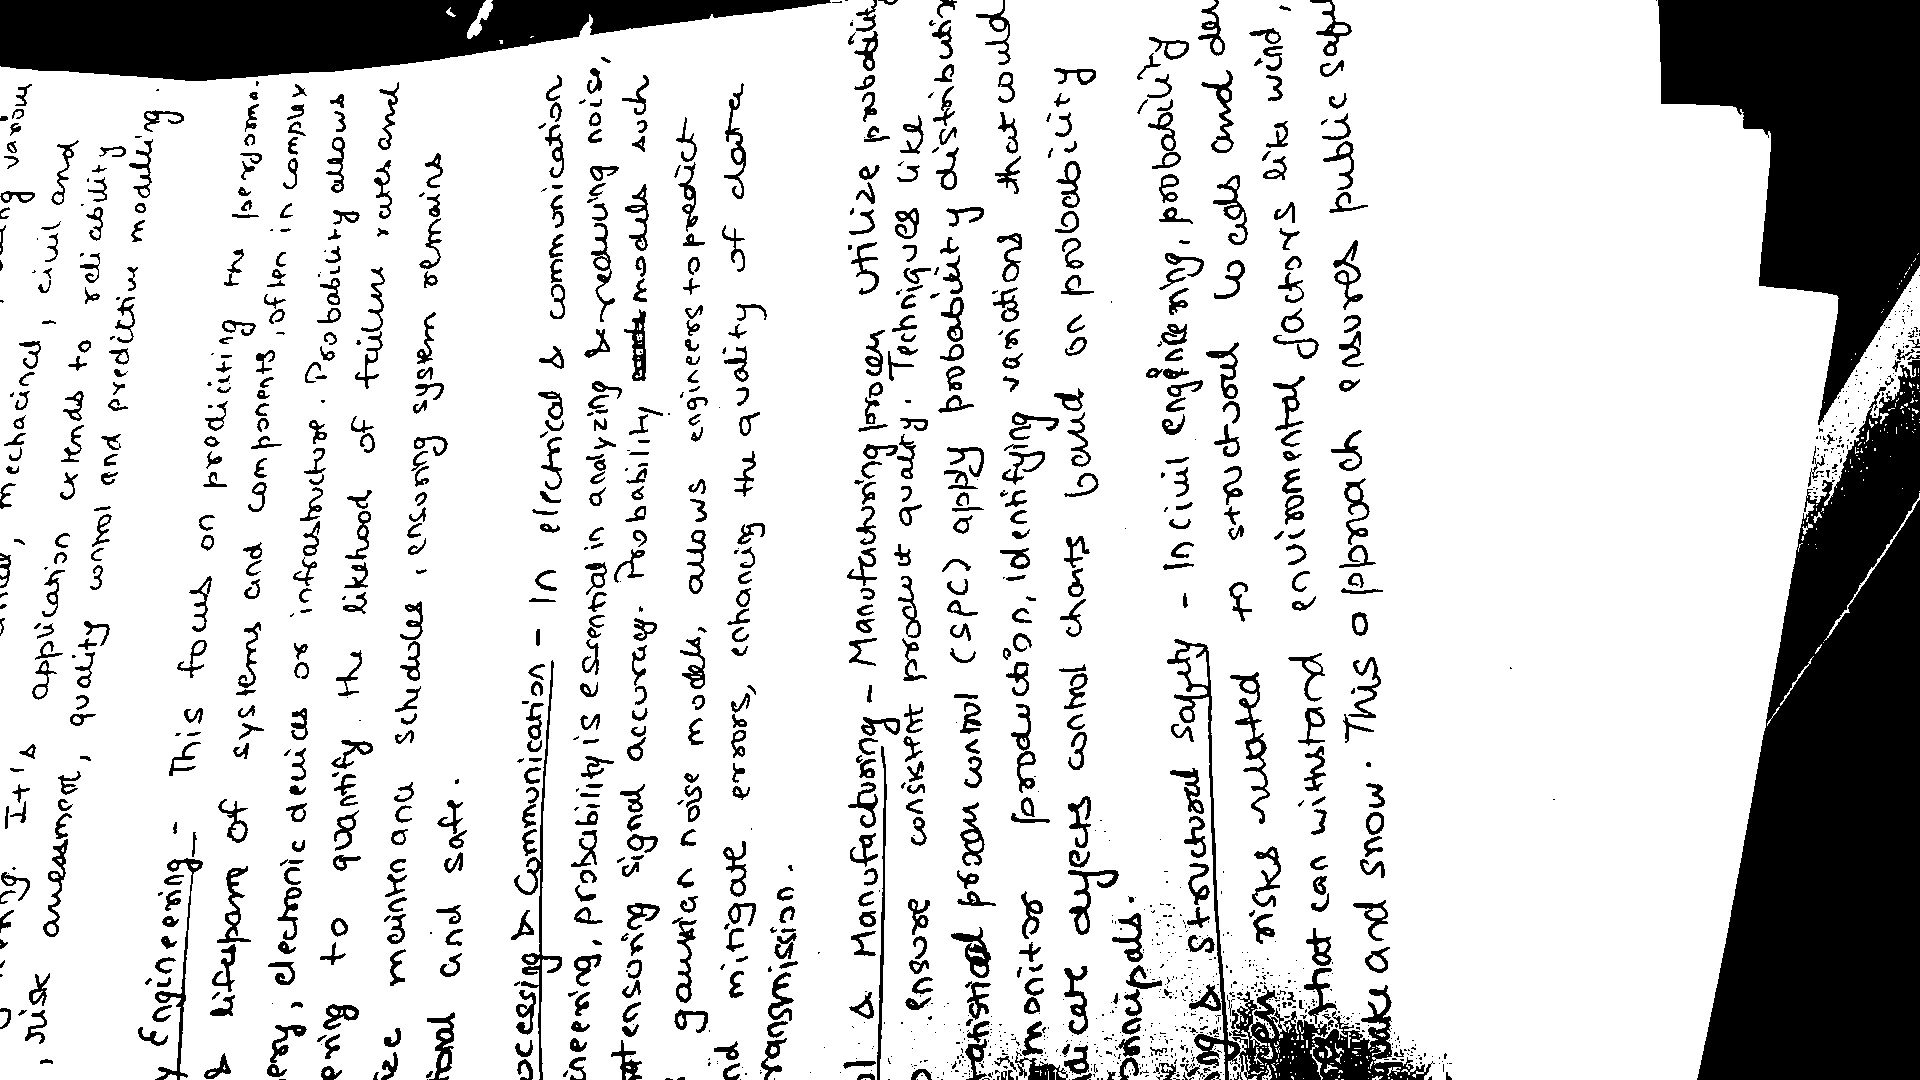 ering. It's
mechacinal, civil and
, risk assessment, application extends to reliability
quality control and predictive modelling.
y Engineering - This focus on prediciting the performa.
& lifespam of systems and components, often in complex
nery, electronic devices or infrastructure. Probability allows
ering to quantify the likehood of failure rates and
ize maintenana schedules, ensuring system remains
tional and safe.
ocessing & Communication - In electrical & communication
ineering, probability is essential in analyzing & reducing noise,
ensuring signal accuracy. Probability models such
gaussian noise models, allows engineers to predict
nd mitigate errors, enhancing the quality of data
ransmission.
ol & Manufacturing - Manufacturing process utilize probability
o ensure consistent product quality. Techniques like
tatistical process control (SPC) apply probability distributio
monitor production, identifying variations that could
dicate defects control charts based on probability
principals.
ing & structural safety - In civil engineering, probability
risks related to structural loads and
that can withstand environmental factors like wind,
uake and snow. This approach ensures public safe